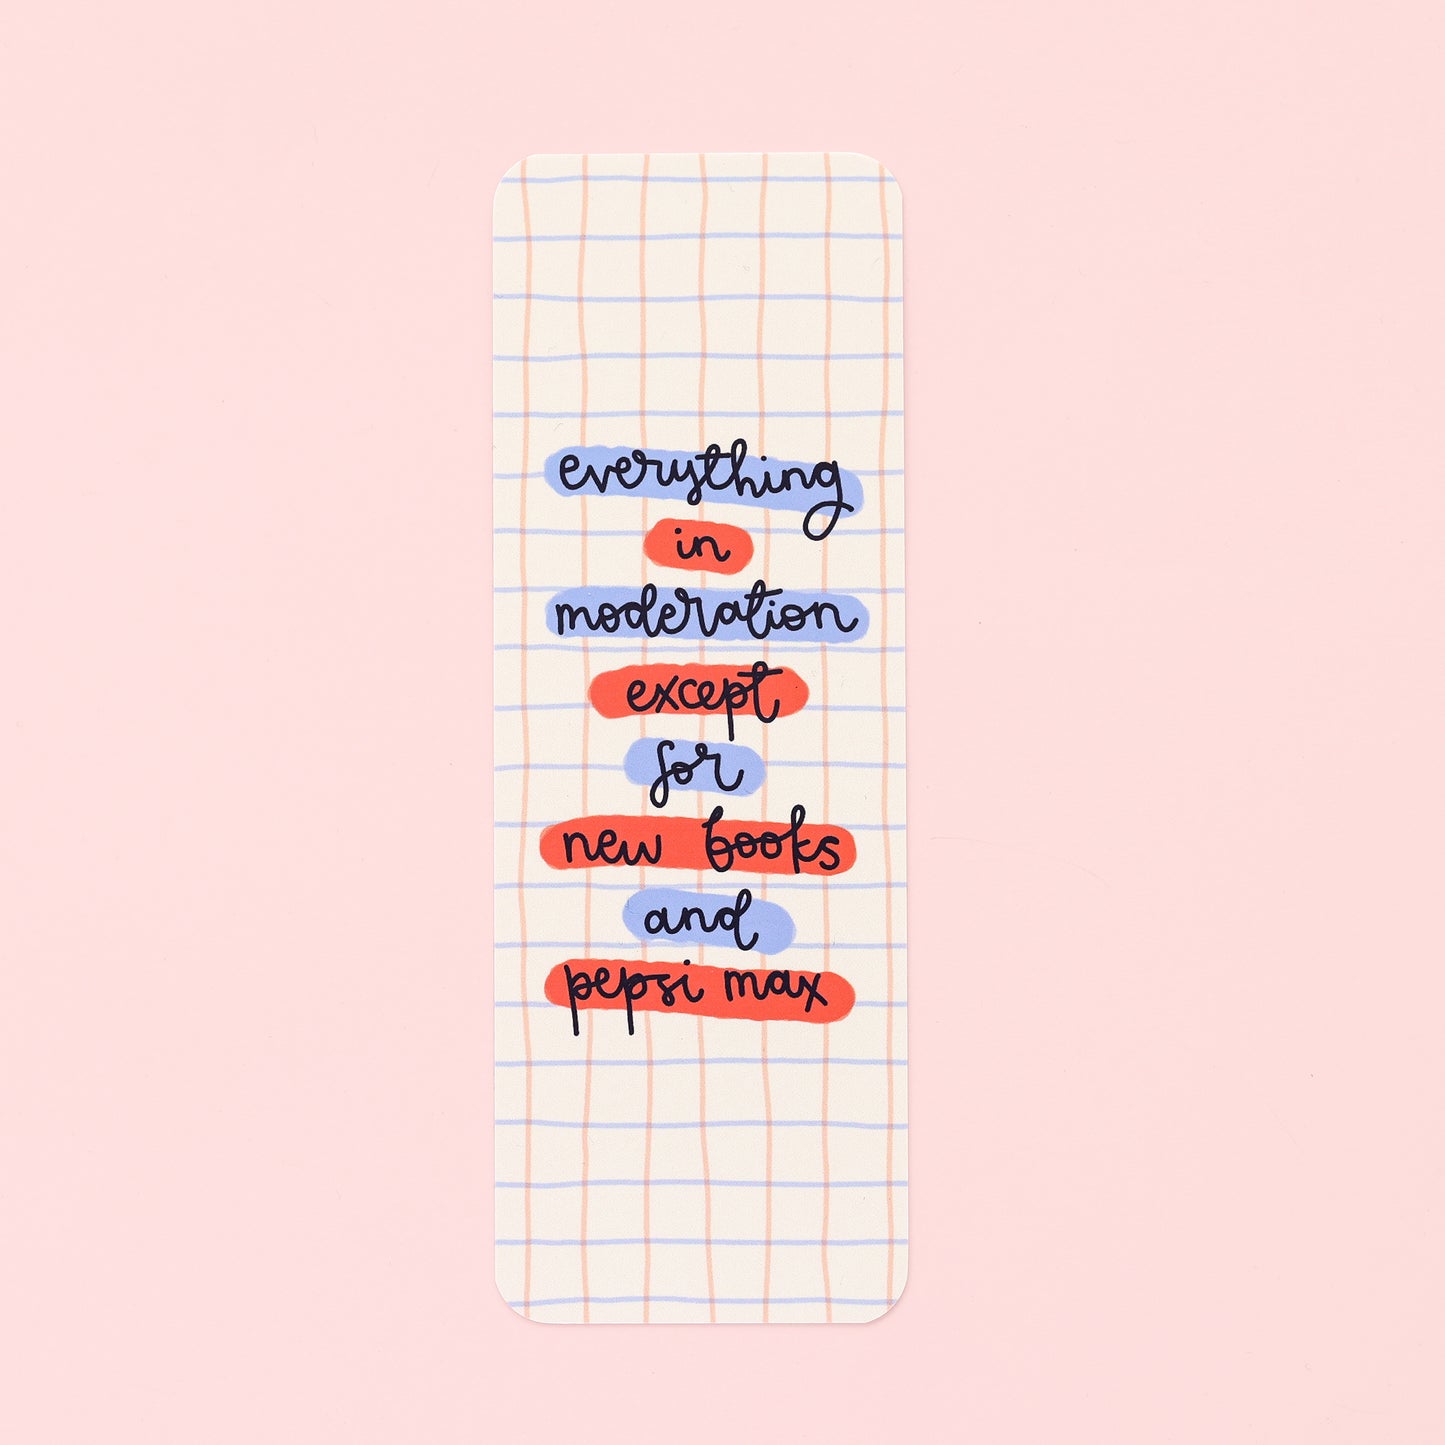 everything
in
moderation
except
for
new books
and
pepsi max